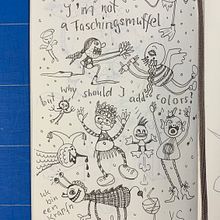 I'm not
a Faschingsmuffel
but why should I add colors!
Ich
bin